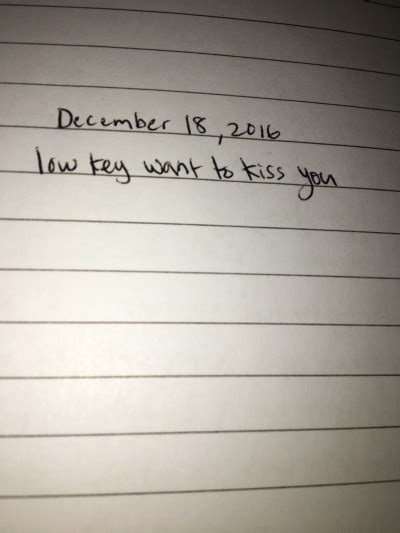 December 18, 2016
low key want to kiss you